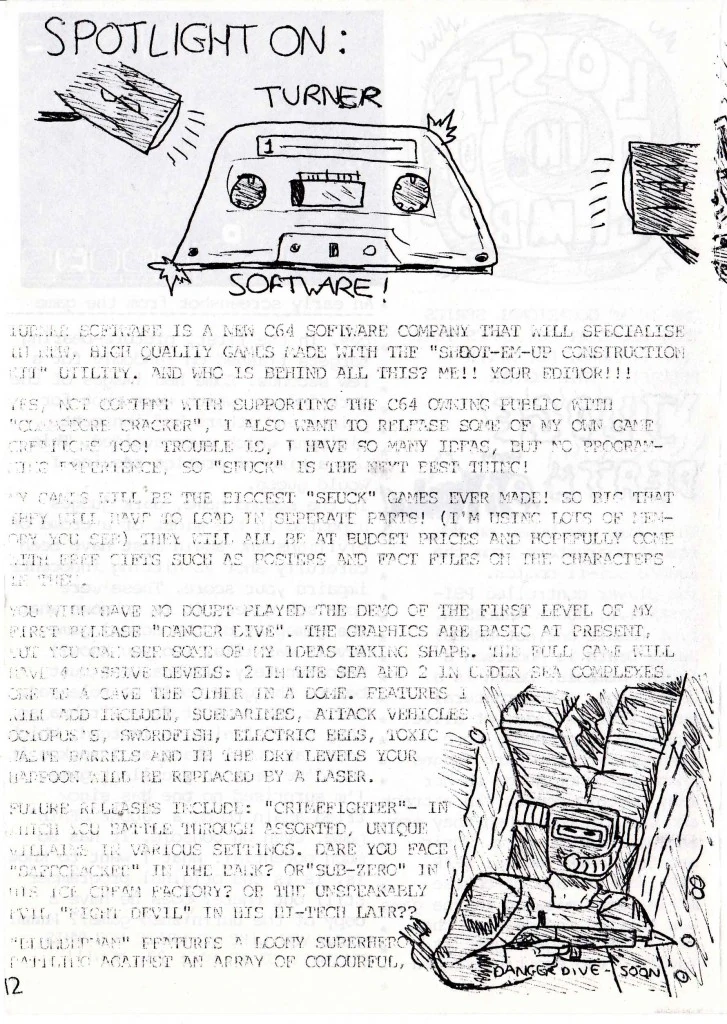 SPOTLIGHT ON:
TURNER
1
SOFTWARE!
TURNER SOFTWARE IS A NEW C64 SOFTWARE COMPANY THAT WILL SPECIALISE
IN NEW, HIGH QUALITY GAMES MADE WITH THE "SHOOT-EM-UP CONSTRUCTION
KIT" UTILITY. AND WHO IS BEHIND ALL THIS? ME!! YOUR EDITOR!!!
YES, NOT CONTENT WITH SUPPORTING THE C64 OWNING PUBLIC WITH
"COMMODORE CRACKER", I ALSO WANT TO RELEASE SOME OF MY OWN GAME
CREATIONS TOO! TROUBLE IS, I HAVE SO MANY IDEAS, BUT NO PROGRAM-
MING EXPERIENCE, SO "SEUCK" IS THE NEXT BEST THING!
MY GAMES WILL BE THE BIGGEST "SEUCK" GAMES EVER MADE! SO BIG THAT
THEY WILL HAVE TO LOAD IN SEPERATE PARTS! (I'M USING LOTS OF MEM-
ORY YOU SEE) THEY WILL ALL BE AT BUDGET PRICES AND HOPEFULLY COME
WITH FREE GIFTS SUCH AS POSTERS AND FACT FILES ON THE CHARACTERS
IN THEM.
YOU WILL HAVE NO DOUBT PLAYED THE DEMO OF THE FIRST LEVEL OF MY
FIRST RELEASE "DANGER DIVE". THE GRAPHICS ARE BASIC AT PRESENT,
BUT YOU CAN SEE SOME OF MY IDEAS TAKING SHAPE. THE FULL GAME WILL
HAVE 4 MASSIVE LEVELS: 2 IN THE SEA AND 2 IN UNDER SEA COMPLEXES.
ONE IN A CAVE THE OTHER IN A DOME. FEATURES I
WILL ADD INCLUDE, SUBMARINES, ATTACK VEHICLES
OCTOPUS'S, SWORDFISH, ELECTRIC EELS, TOXIC
WASTE BARRELS AND IN THE DRY LEVELS YOUR
HARPOON WILL BE REPLACED BY A LASER.
FUTURE RELEASES INCLUDE: "CRIMEFIGHTER"- IN
WHICH YOU BATTLE THROUGH ASSORTED, UNIQUE
VILLAINS IN VARIOUS SETTINGS. DARE YOU FACE
"SAFECRACKER" IN THE BANK? OR "SUB-ZERO" IN
HIS ICE CREAM FACTORY? OR THE UNSPEAKABLY
EVIL "NIGHT DEVIL" IN HIS HI-TECH LAIR??
"BLUNDERMAN" FEATURES A LOONY SUPERHERO
BATTLING AGAINST AN ARRAY OF COLOURFUL,
DANGER DIVE - SOON
12